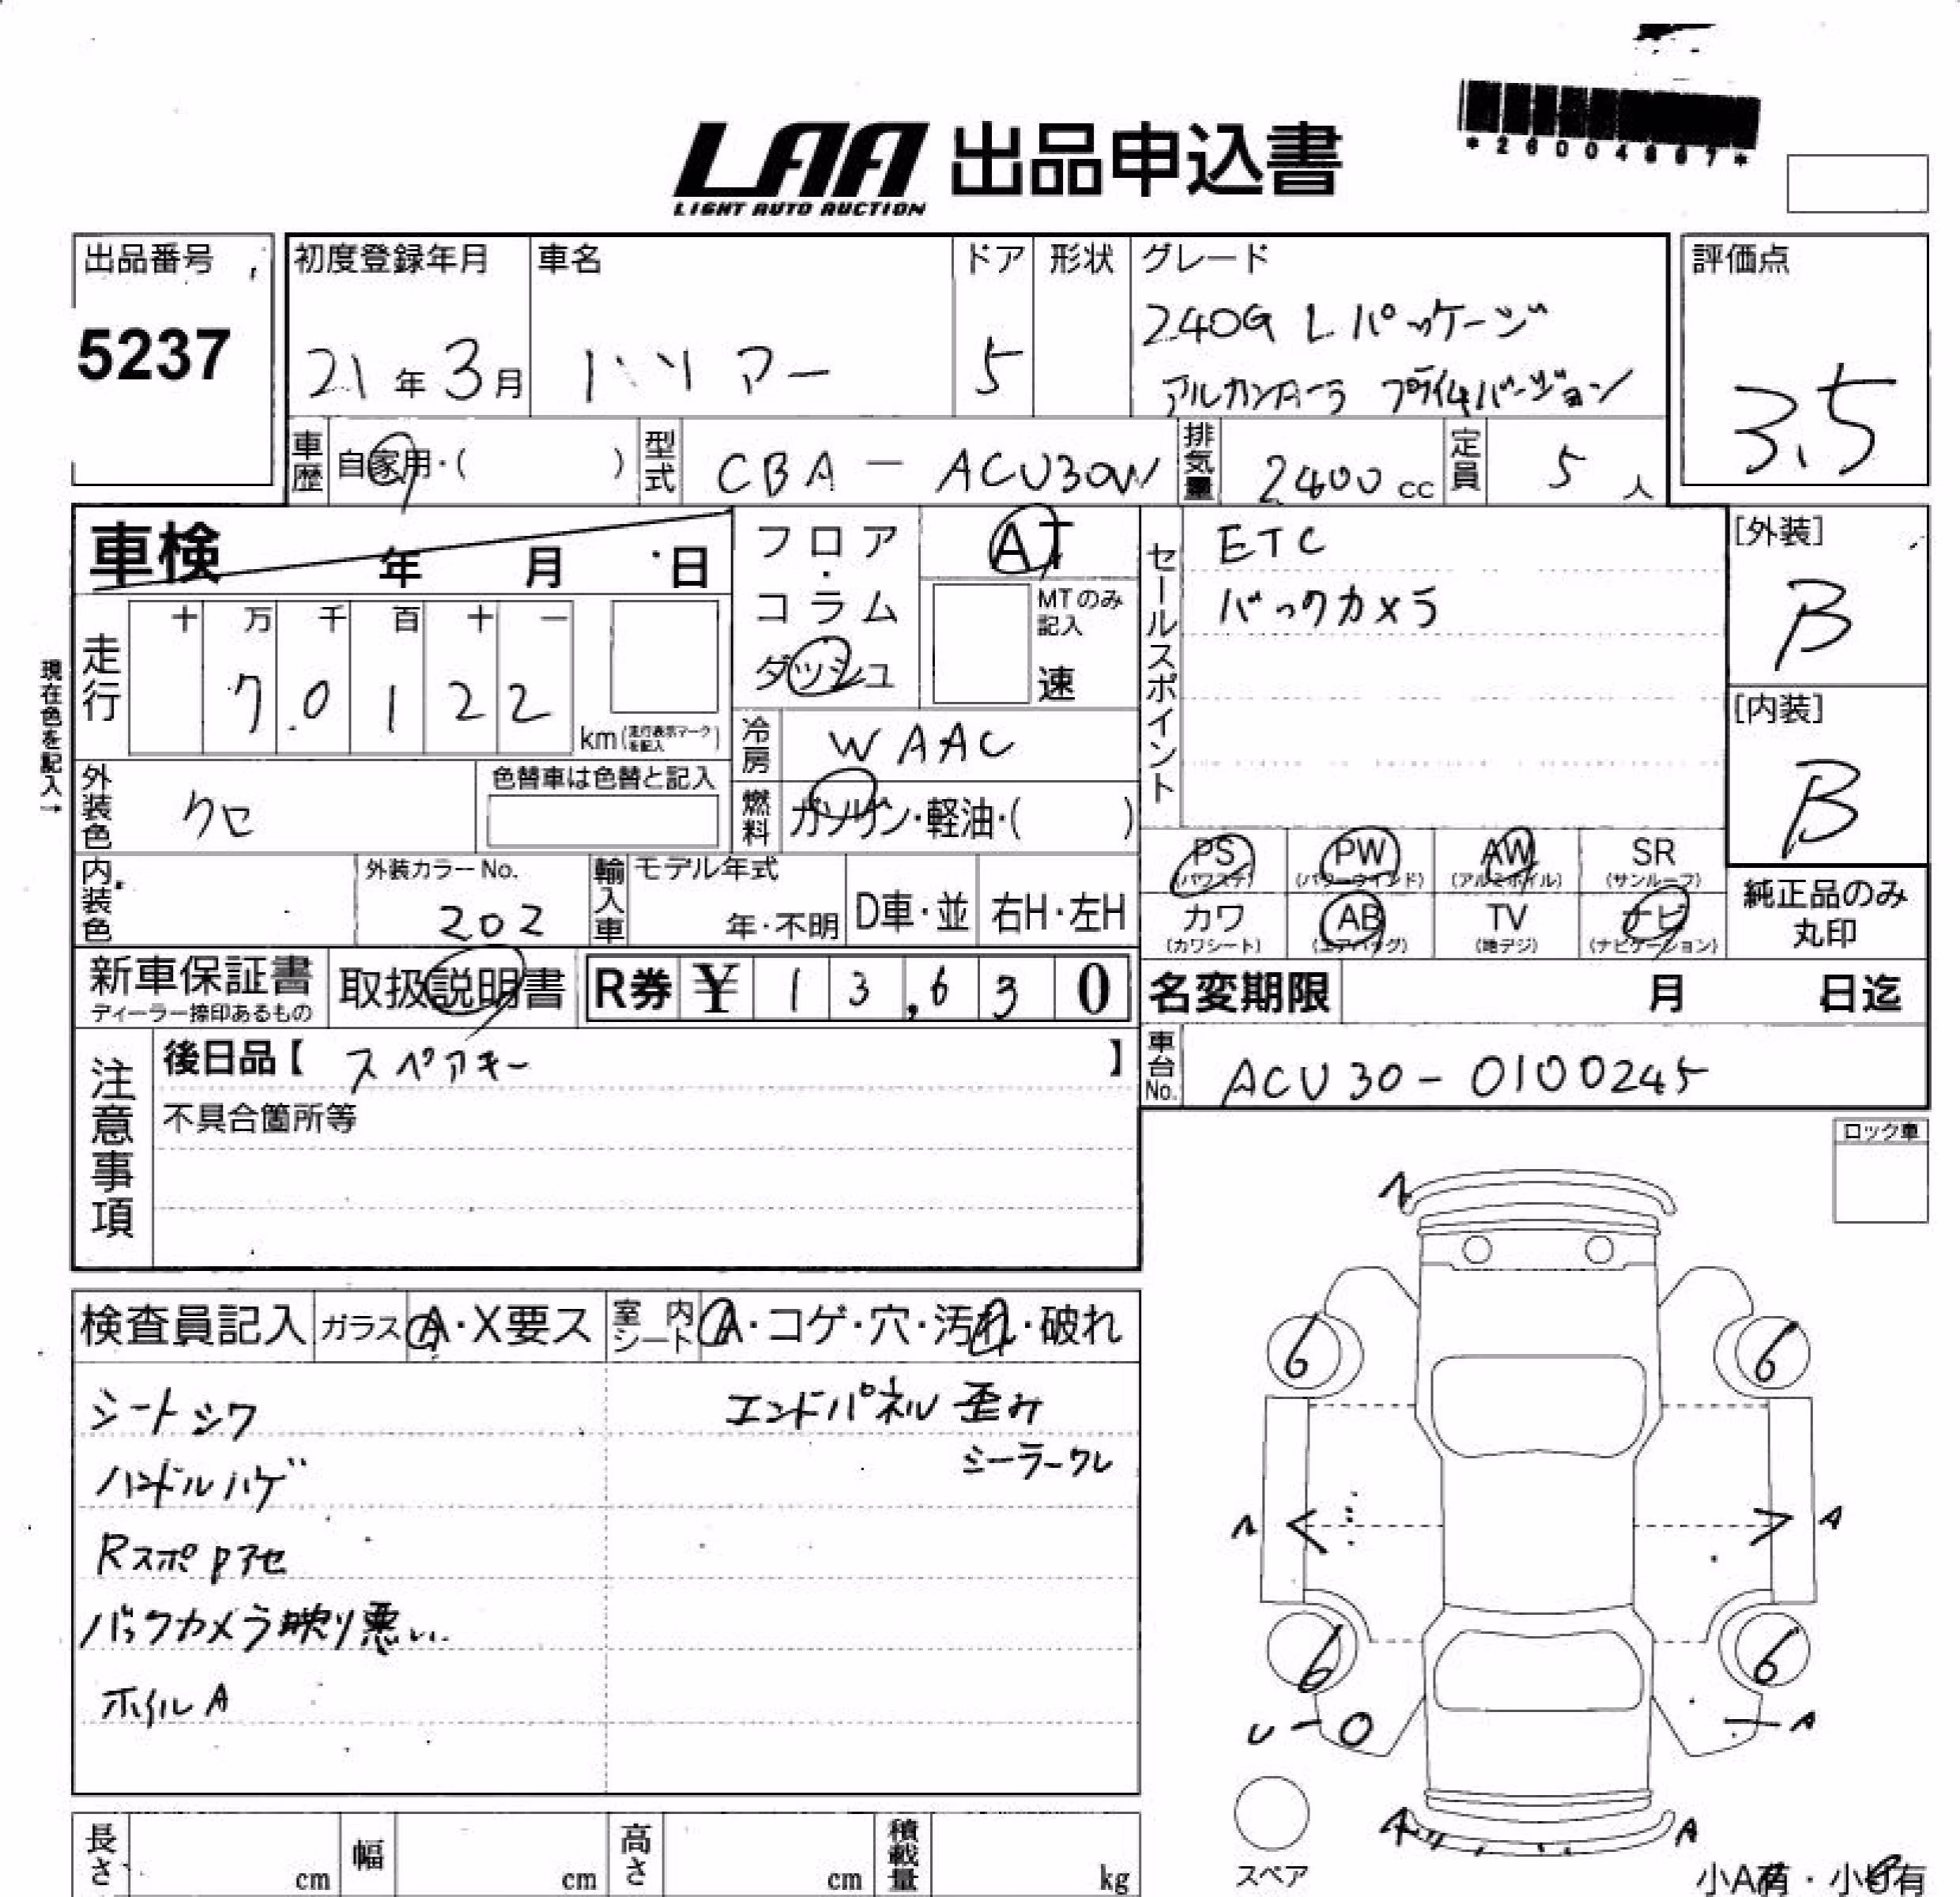 LAA 出品申込書
LIGHT AUTO AUCTION
*26004887*
出品番号
5237
初度登録年月
21年3月
車名
ハリアー
ドア
5
形状
グレード
240G Lパッケージ
アルカンターラ プライムバージョン
評価点
3.5
車歴
自家用・( )
型式
CBA - ACU30W
排気量
2400cc
定員
5人
車検 年 月 日
フロア・コラム
ダッシュ
AT
MTのみ記入
速
セールスポイント
ETC
バックカメラ
[外装]
B
[内装]
B
現在色を記入→
走行
十 万 千 百 十 一
7.0122
km(走行表示マークを記入)
冷房
WAAC
外装色
クロ
色替車は色替と記入
燃料
ガソリン・軽油・( )
PS (パワステ)
PW (パワーウインド)
AW (アルミホイル)
SR (サンルーフ)
カワ (カワシート)
AB (エアバッグ)
TV (地デジ)
ナビ (ナビゲーション)
純正品のみ丸印
内装色
外装カラーNo.
202
輸入車
モデル年式
年・不明
D車・並
右H・左H
新車保証書
ディーラー捺印あるもの
取扱説明書
R券 ¥ 13,630
名変期限 月 日迄
注意事項
後日品【 スペアキー 】
不具合箇所等
車台No.
ACU30-0100245
ロック車
検査員記入
ガラス A・X要ス
室内シート A・コゲ・穴・汚れ・破れ
シートシワ
エンドパネル 歪み
シーラークレ
ハンドルハゲ
Rスポ Pアセ
バックカメラ映り悪い
ホイルA
6 6
A
6 6
U
A
A A
スペア
小A有・小U有
長さ cm
幅 cm
高さ cm
積載量 kg